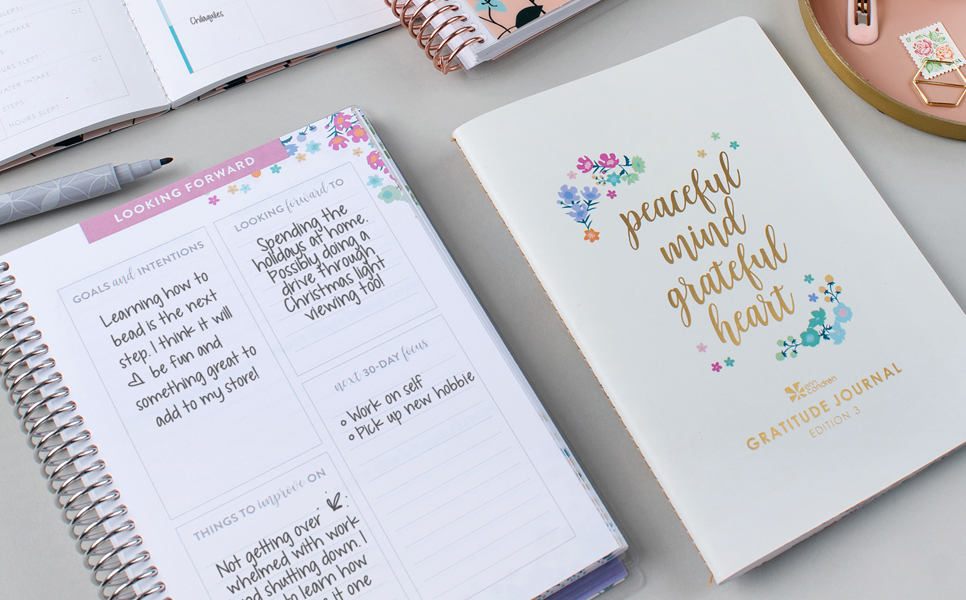 Chilaquiles
INTAKE
OZ
HOURS SLEPT
WATER INTAKE
OZ
STEPS
HOURS SLEPT
LOOKING FORWARD
GOALS and INTENTIONS
Learning how to
bead is the next
step. I think it will
be fun and
something great to
add to my store!
LOOKING forward TO
Spending the
holidays at home.
Possibly doing a
drive through
Christmas light
viewing too!
next 30-DAY focus
Work on self
Pick up new hobbie
THINGS TO improve ON
Not getting over
whelmed with work
and shutting down. I
to learn how
it one
peaceful
mind
grateful
heart
erin condren
GRATITUDE JOURNAL
EDITION 3